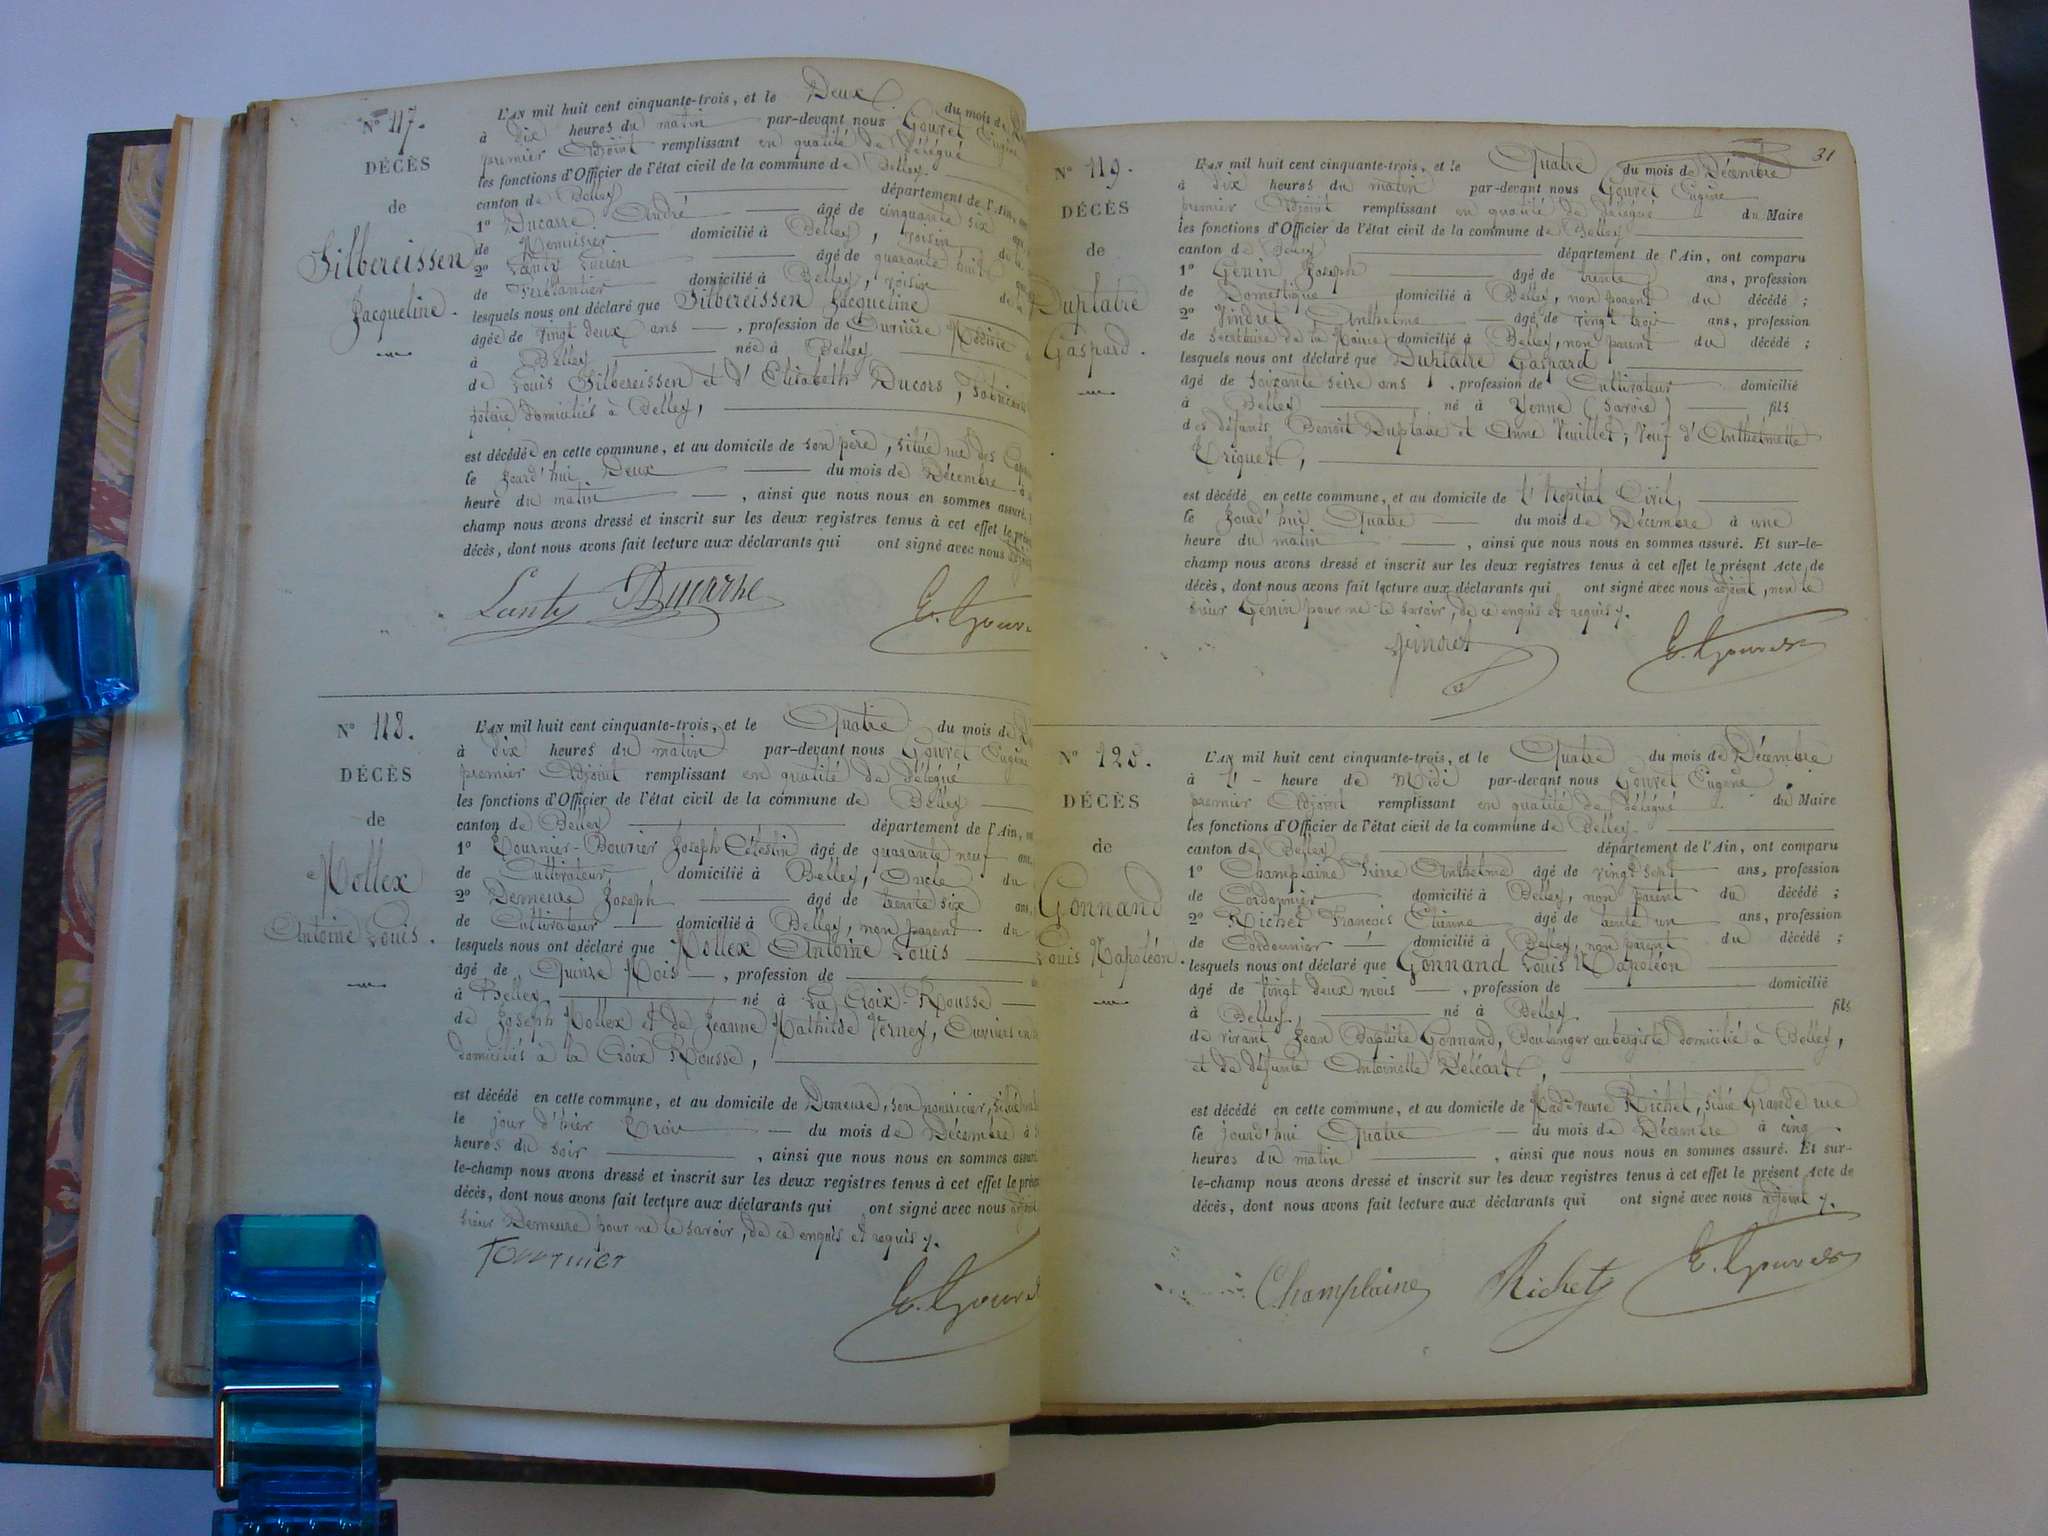 N° 117.
DÉCÈS
de
Silbereissen
Jacqueline.
L'AN mil huit cent cinquante-trois, et le Deux du mois de
à dix heures du matin par-devant nous Gouvet Eugène
premier Adjoint remplissant en qualité de délégué
les fonctions d'Officier de l'état civil de la commune de Belley
canton de Belley département de l'Ain,
1° Ducarre André âgé de cinquante six ans,
de Menuisier domicilié à Belley, voisin de la
2° Lanty Lucien âgé de quarante huit
de Ferblantier domicilié à Belley, voisin de la
lesquels nous ont déclaré que Silbereissen Jacqueline
âgée de vingt deux ans, profession de Ouvrière
à Belley née à Belley
de Louis Silbereissen et d'Elisabeth Ducors,
domiciliés à Belley,
est décédée en cette commune, et au domicile de son père, situé rue des
le jourd'hui Deux du mois de Décembre à
heure du matin, ainsi que nous nous en sommes assuré.
champ nous avons dressé et inscrit sur les deux registres tenus à cet effet le
décès, dont nous avons fait lecture aux déclarants qui ont signé avec nous
Lanty Ducarre E. Gouv
N° 118.
DÉCÈS
de
Mollex
Antoine Louis.
L'AN mil huit cent cinquante-trois, et le Quatre du mois de
à dix heures du matin par-devant nous Gouvet Eugène
premier Adjoint remplissant en qualité de délégué
les fonctions d'Officier de l'état civil de la commune de Belley
canton de Belley département de l'Ain,
1° Tournier-Bouvier Joseph Célestin âgé de quarante neuf ans,
de Cultivateur domicilié à Belley, Oncle du
2° Demeure Joseph âgé de trente six ans,
de Cultivateur domicilié à Belley, non parent du
lesquels nous ont déclaré que Mollex Antoine Louis
âgé de Quinze Mois, profession de
à Belley né à La Croix-Rousse
de Joseph Mollex et de Jeanne Mathilde Verney, Ouvriers en
domiciliés à la Croix Rousse,
est décédé en cette commune, et au domicile de Demeure, son nourricier,
le jour d'hier Trois du mois de Décembre à
heures du soir, ainsi que nous nous en sommes assuré
le-champ nous avons dressé et inscrit sur les deux registres tenus à cet effet le
décès, dont nous avons fait lecture aux déclarants qui ont signé avec nous
sieur Demeure pour ne le savoir, de ce enquis et requis y.
Tournier E. Gouv
31
N° 119.
DÉCÈS
de
Duplatre
Gaspard.
L'AN mil huit cent cinquante-trois, et le Quatre du mois de Décembre
à dix heures du matin par-devant nous Gouvet Eugène
premier Adjoint remplissant en qualité de délégué du Maire
les fonctions d'Officier de l'état civil de la commune de Belley
canton de Belley département de l'Ain, ont comparu
1° Genin Joseph âgé de trente ans, profession
de Domestique domicilié à Belley, non parent du décédé ;
2° Jindret Anthelme âgé de vingt trois ans, profession
de Secrétaire de la Mairie domicilié à Belley, non parent du décédé ;
lesquels nous ont déclaré que Duplatre Gaspard
âgé de soixante seize ans, profession de Cultivateur domicilié
à Belley né à Yenne (Savoie) fils
des défunts Benoît Duplatre et Anne Veuillet, Veuf d'Anthelmette
Triquet,
est décédé en cette commune, et au domicile de l'Hopital Civil,
le jourd'hui Quatre du mois de Décembre à une
heure du matin, ainsi que nous nous en sommes assuré. Et sur-le-
champ nous avons dressé et inscrit sur les deux registres tenus à cet effet le présent Acte de
décès, dont nous avons fait lecture aux déclarants qui ont signé avec nous adjoint, non le
sieur Genin pour ne le savoir, de ce enquis et requis y.
Jindret E. Gouvet
N° 120.
DÉCÈS
de
Gonnand
Louis Napoléon.
L'AN mil huit cent cinquante-trois, et le Quatre du mois de Décembre
à l' - heure de Midi par-devant nous Gouvet Eugène
premier Adjoint remplissant en qualité de délégué du Maire
les fonctions d'Officier de l'état civil de la commune de Belley
canton de Belley département de l'Ain, ont comparu
1° Champlaine Pierre Anthelme âgé de vingt sept ans, profession
de Cordonnier domicilié à Belley, non parent du décédé ;
2° Richet François Etienne âgé de trente un ans, profession
de Cordonnier domicilié à Belley, non parent du décédé ;
lesquels nous ont déclaré que Gonnand Louis Napoléon
âgé de vingt deux mois, profession de domicilié
à Belley, né à Belley fils
de vivant Jean Baptiste Gonnand, Boulanger aubergiste domicilié à Belley,
et de défunte Antoinette Déléart,
est décédé en cette commune, et au domicile de Mad. Veuve Richet, situé Grande rue
le jourd'hui Quatre du mois de Décembre à cinq
heures du matin, ainsi que nous nous en sommes assuré. Et sur-
le-champ nous avons dressé et inscrit sur les deux registres tenus à cet effet le présent Acte de
décès, dont nous avons fait lecture aux déclarants qui ont signé avec nous adjoint y.
Champlaine Richet E. Gouvet